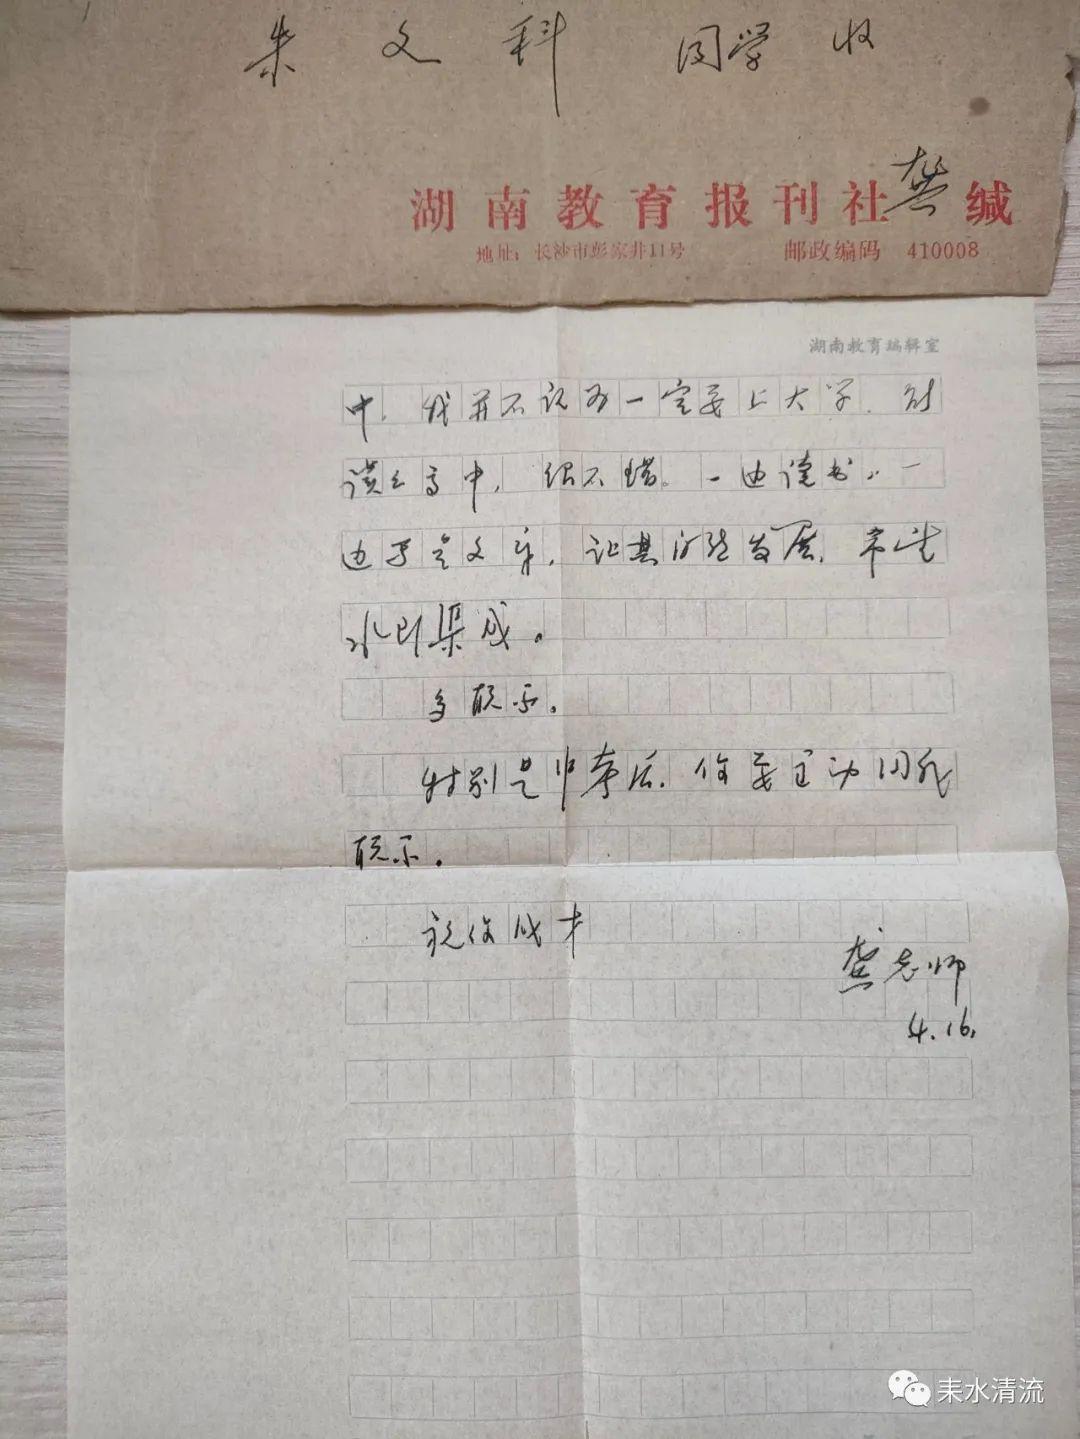 朱文科 同学 收
湖南教育报刊社龚缄
地址：长沙市彭家井11号 邮政编码 410008
湖南教育编辑室
中，我并不认为一定要上大学，能
读上高中，很不错。一边读书，一
边写点文章，让其自然发展，常能
水到渠成。
多联系。
特别是中考后，你要主动同我
联系。
祝你成才
龚老师
4.16.
耒水清流